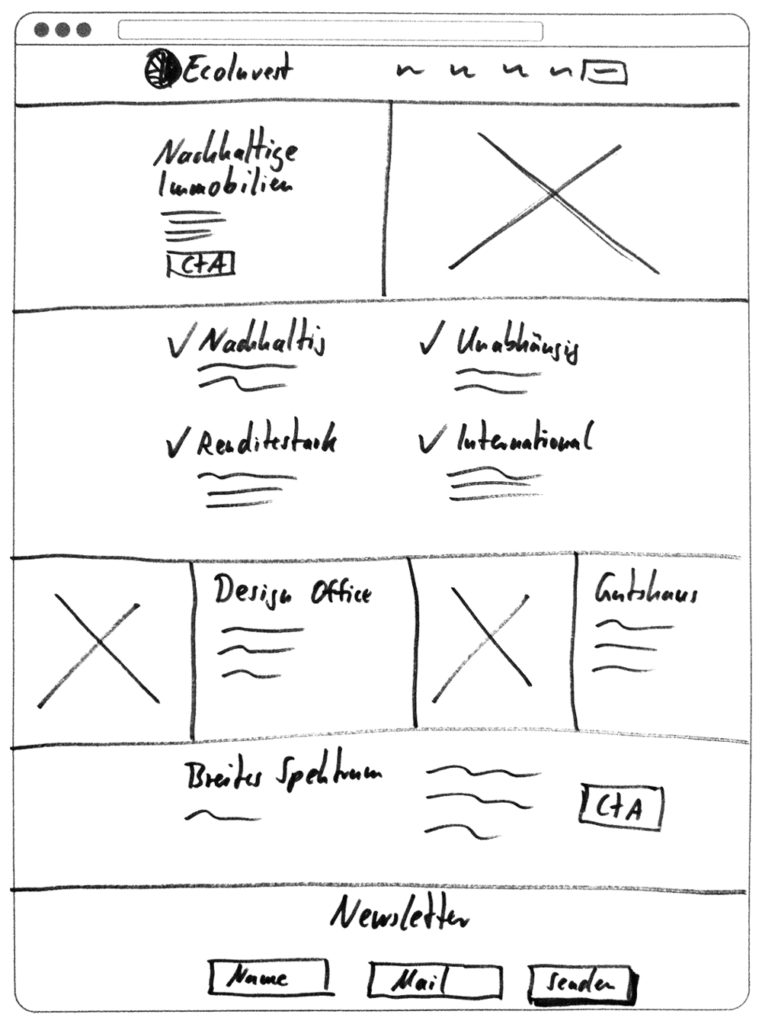 EcoInvest
Nachhaltige
Immobilien
CtA
Nachhaltig
Unabhängig
Renditestark
International
Design Office
Gutshaus
Breites Spektrum
CtA
Newsletter
Name
Mail
senden